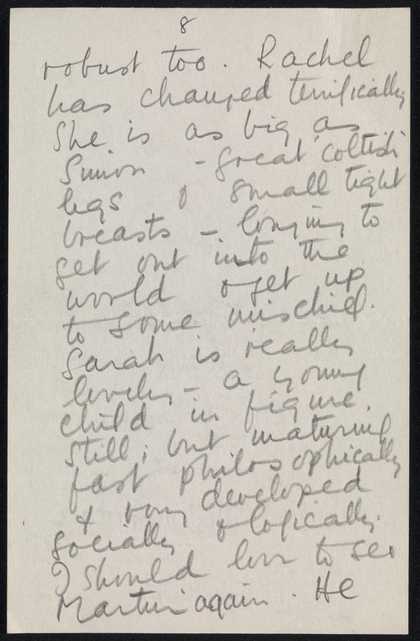 8
robust too. Rachel
has changed terrifically
She is as big as
Simon - great coltish
legs & small tight
breasts - longing to
get out into the
world & get up
to some mischief.
Sarah is really
lovely - a young
child in figure
still, but maturing
fast philosophically
& very developed
socially & logically.
I should love to see
Martin again. He